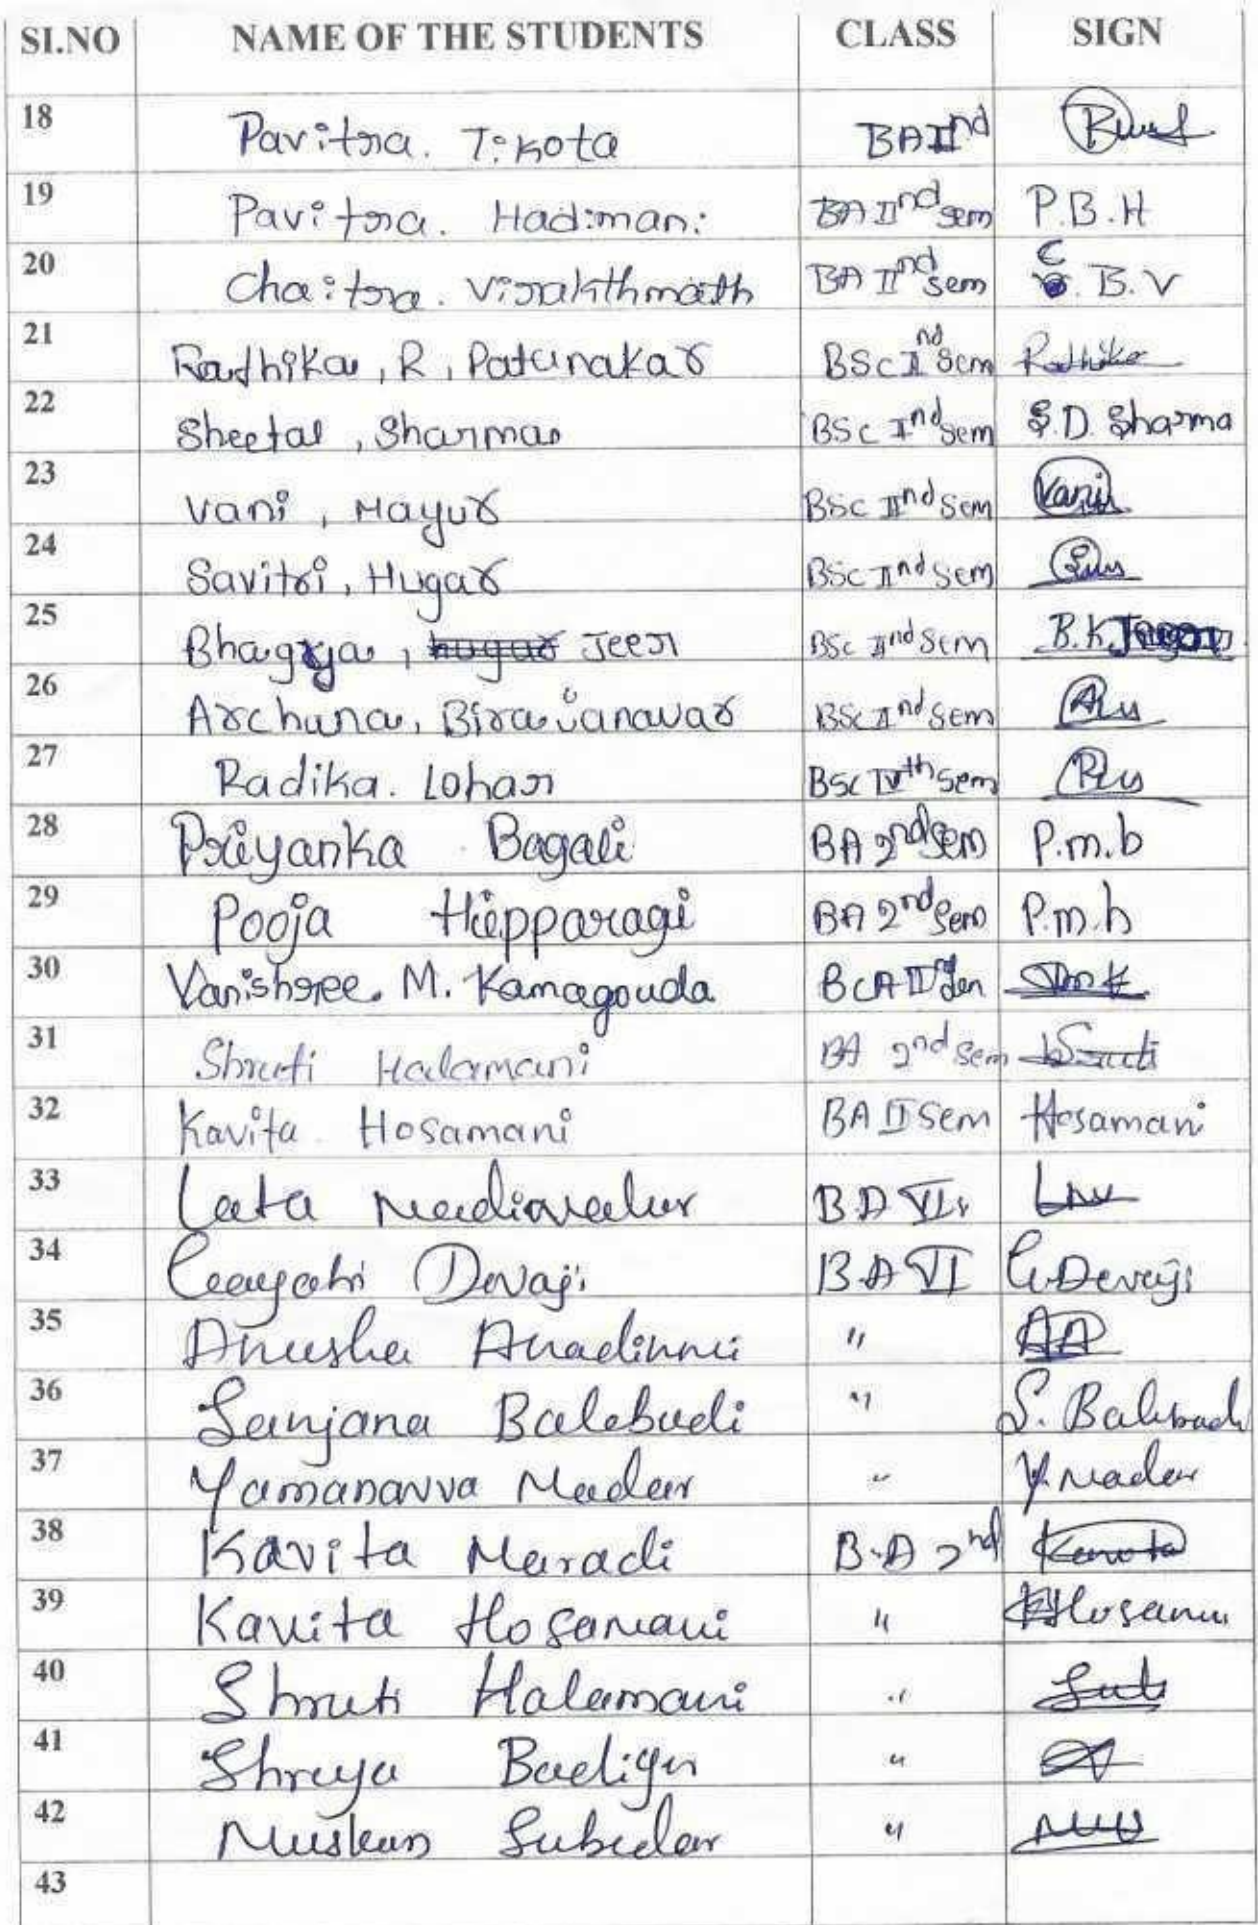 SI.NO NAME OF THE STUDENTS CLASS SIGN
18 Pavitra. Tikota BA IInd
19 Pavitra. Hadimani BA IInd sem P.B.H
20 Chaitra. Virakthmath BA IInd sem C. B.V
21 Radhika, R, Patunakar BSc IInd sem Radhika
22 Sheetal, Sharma BSc IInd sem S.D. Sharma
23 Vani, Mayur BSc IInd sem Vani
24 Savitri, Hugar BSc IInd sem
25 Bhagya, hugar Jeer BSc IInd sem B.K.
26 Archana, BSc IInd sem
27 Radika. Lohar BSc IVth sem
28 Priyanka Bagali BA 2nd sem P.m.b
29 Pooja Hipparagi BA 2nd sem P.m.h
30 Vanishree. M. Kamagouda BCA IInd Sem
31 Shruti Halamani BA 2nd sem Sruti
32 Kavita Hosamani BA II Sem Hosamani
33 Lata Madiwalar BA VI
34 Gayatri Devaji BA VI G.Devaji
35 Anusha Anadinni " AA
36 Sanjana Balebadi " S. Balebadi
37 Yamanavva Madar " Y.Madar
38 Kavita Maradi B.A 2nd Kavita
39 Kavita Hosamani "
40 Shruti Halamani "
41 Shreya Badiger "
42 Muskan Subedar "
43